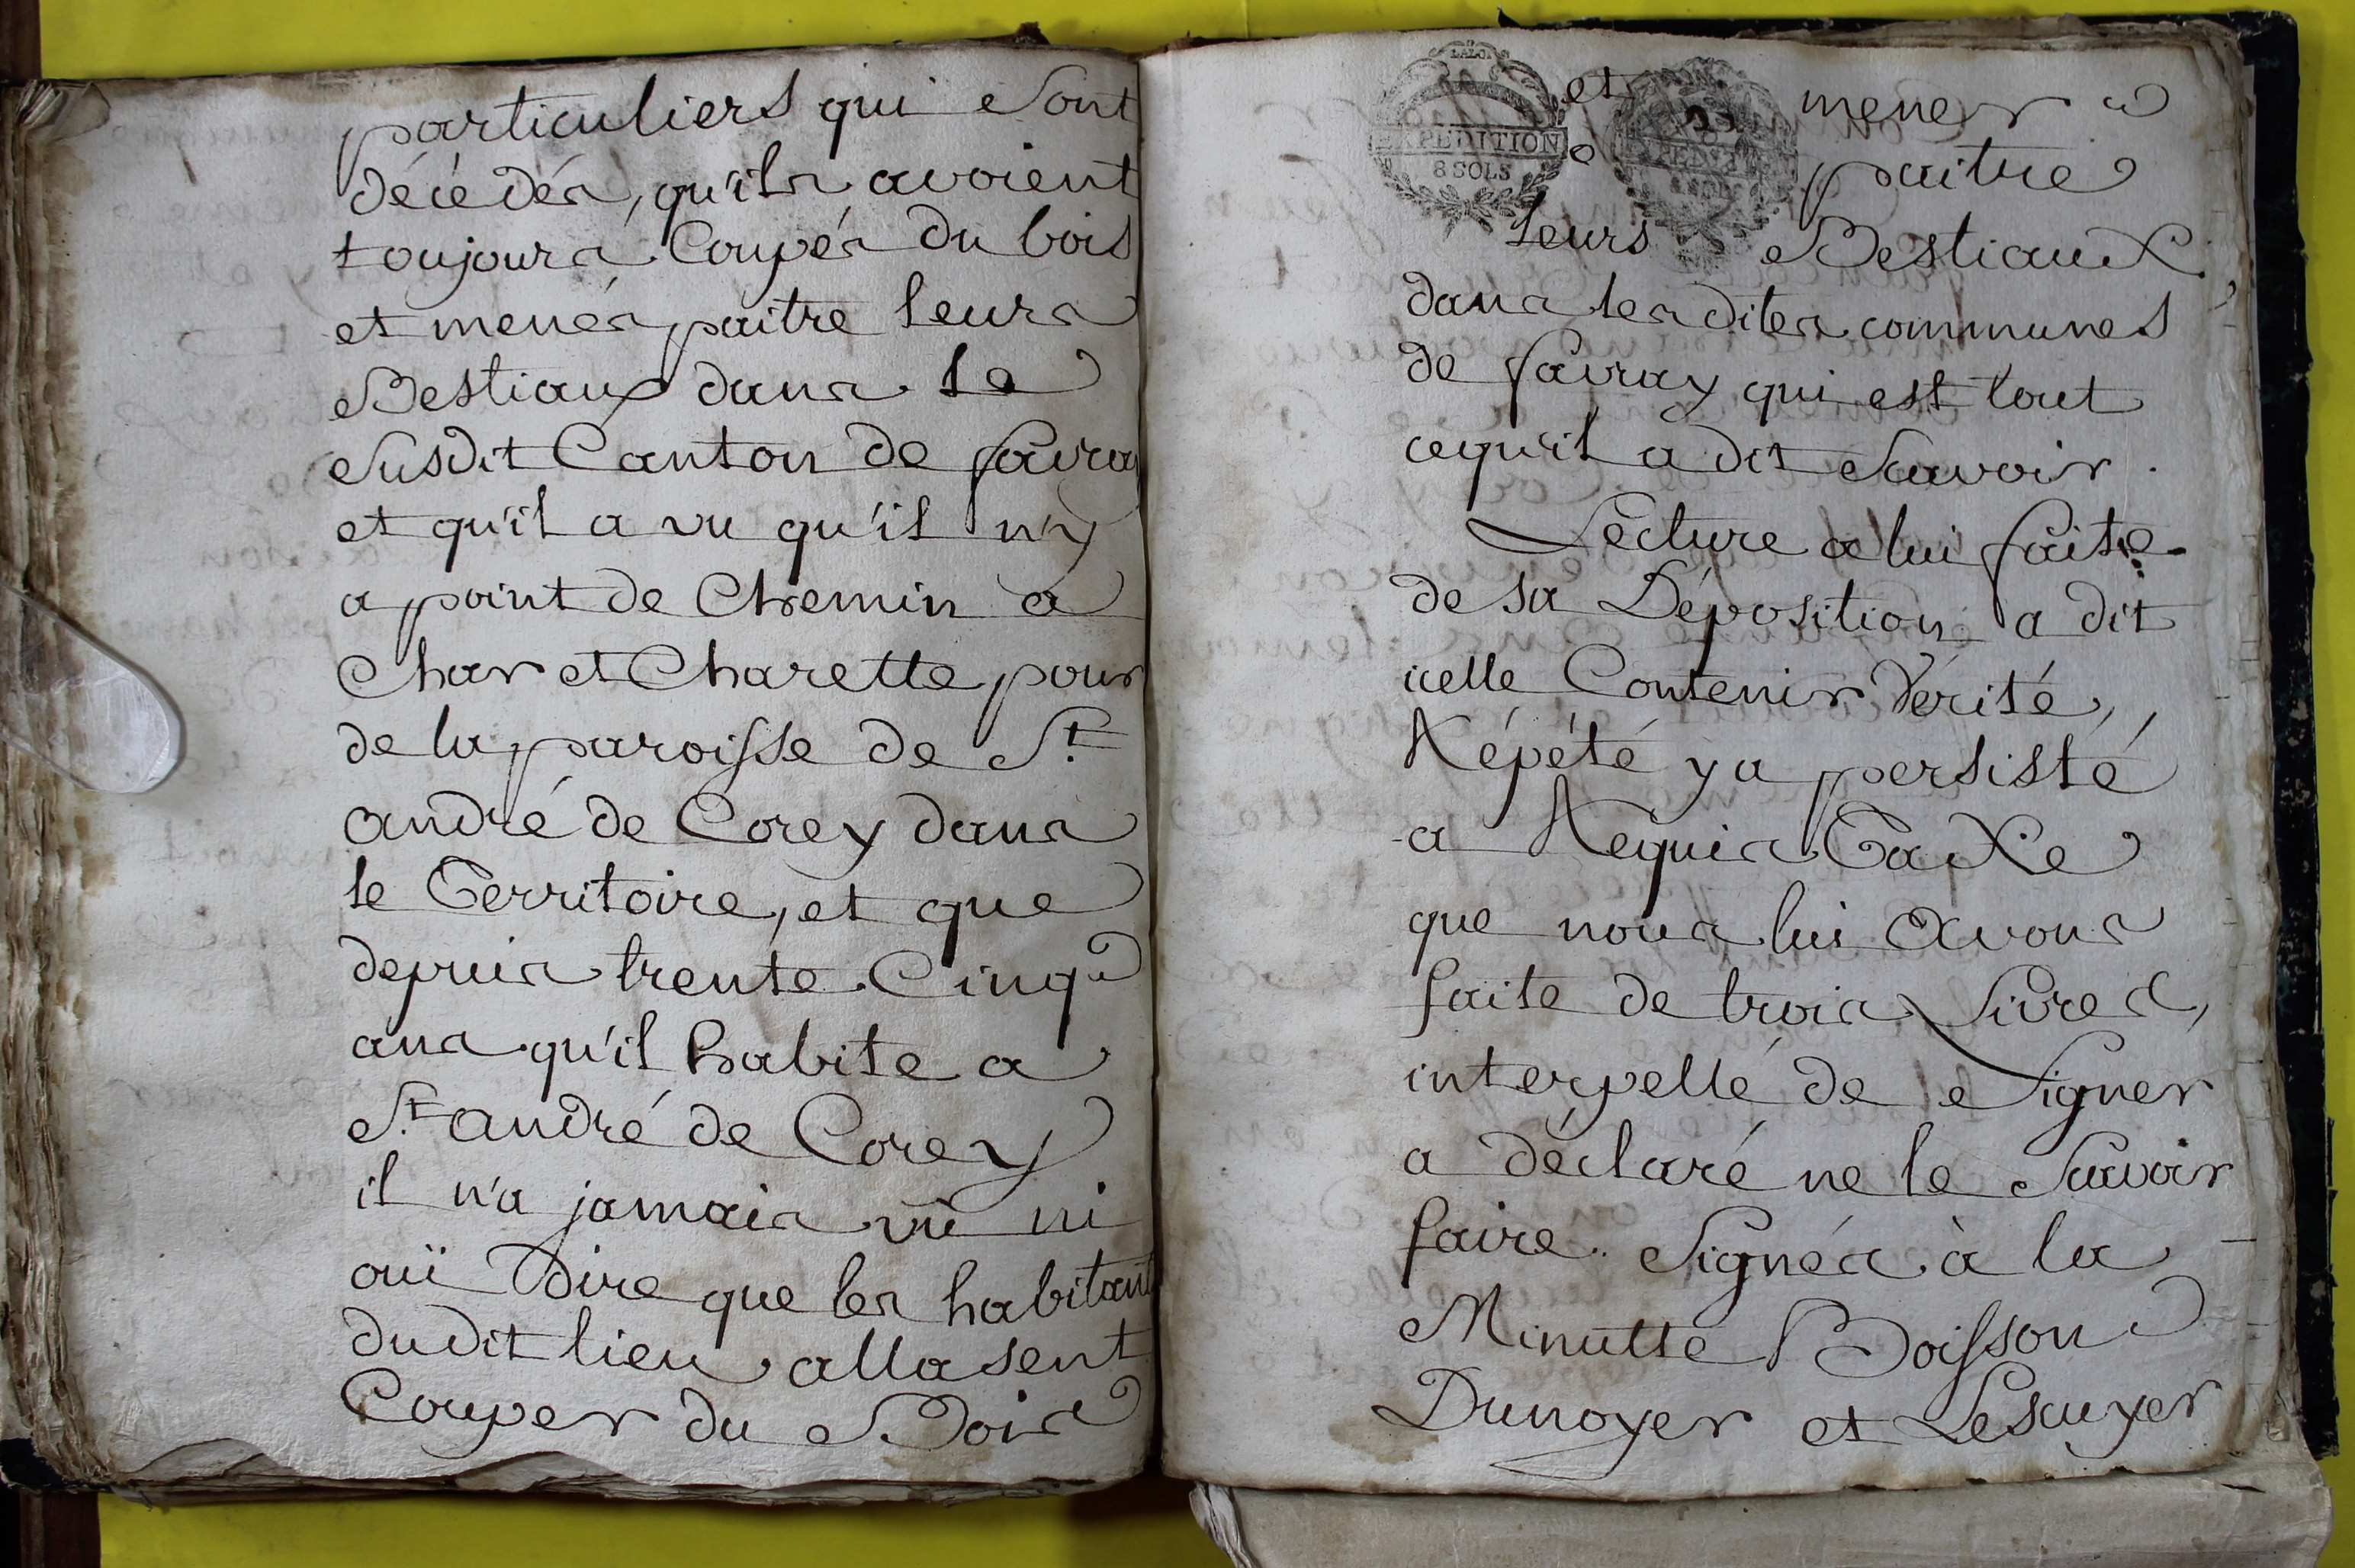 particuliers qui sont
décédés, qu'ils avoient
toujours Coupés du bois
et menés paitre leurs
Bestiaux dans le
susdit Canton de favray
et qu'il a vu qu'il n'y
a point de Chemin a
Char et Charette pour
de la paroisse de St.
andré de Corcy dans
le Territoire, et que
depuis trente Cinq
ans qu'il habite a
St. andré de Corcy
il n'a jamais vû ni
ouï Dire que les habitant
dudit lieu allasent
Couper du Bois
LALO.
EXPEDITION
8 SOLS
et mener
paitre
leurs Bestiaux
dans les dites communes
de favray qui est tout
cequ'il a dit Savoir.
Lecture a lui faite
de sa Déposition a dit
icelle Contenir Vérité,
Répété y a persisté
a Requis Taxe
que nous lui Avons
faite de trois Livres,
interpellé de Signer
a déclaré ne le Savoir
faire. Signés à la
Minutte Boisson
Dunoyer et Lesuyer